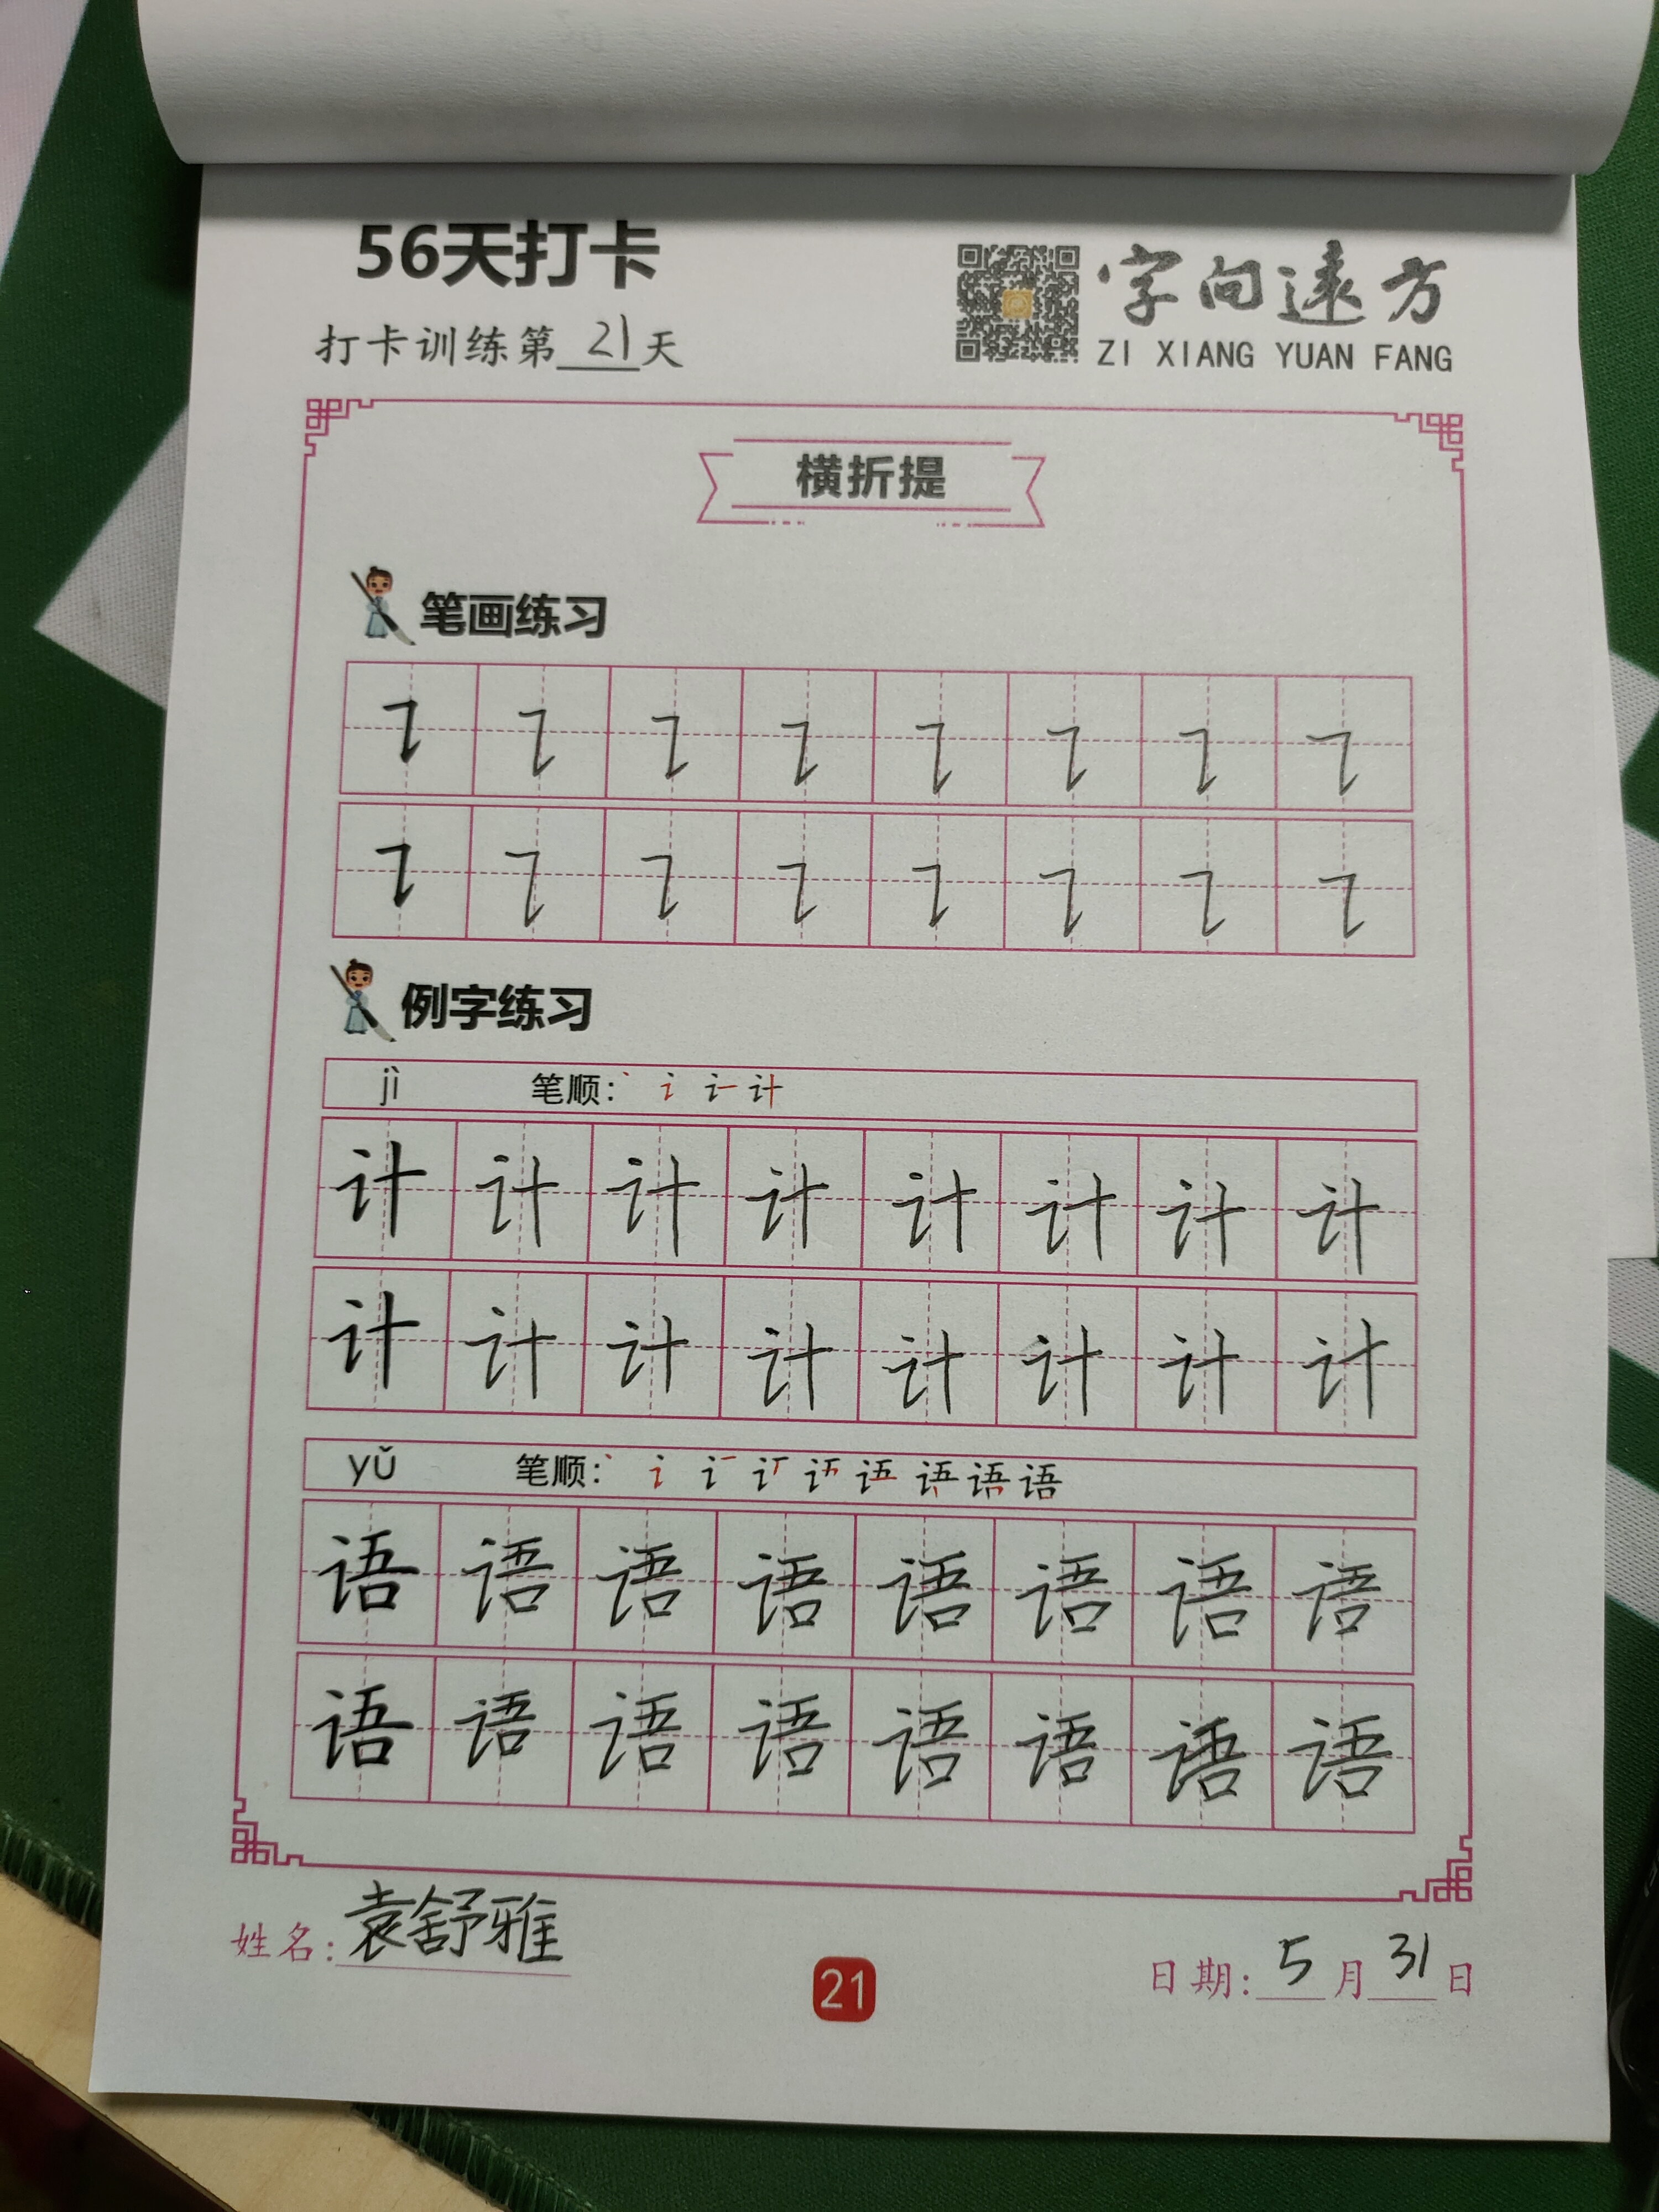 56天打卡
打卡训练第21天
字向远方
ZI XIANG YUAN FANG
横折提
笔画练习
例字练习
jì 笔顺：
计 计 计 计 计 计 计 计
计 计 计 计 计 计 计 计
yǔ 笔顺：
语 语 语 语 语 语 语 语
语 语 语 语 语 语 语 语
姓名：袁舒雅
21
日期：5月31日